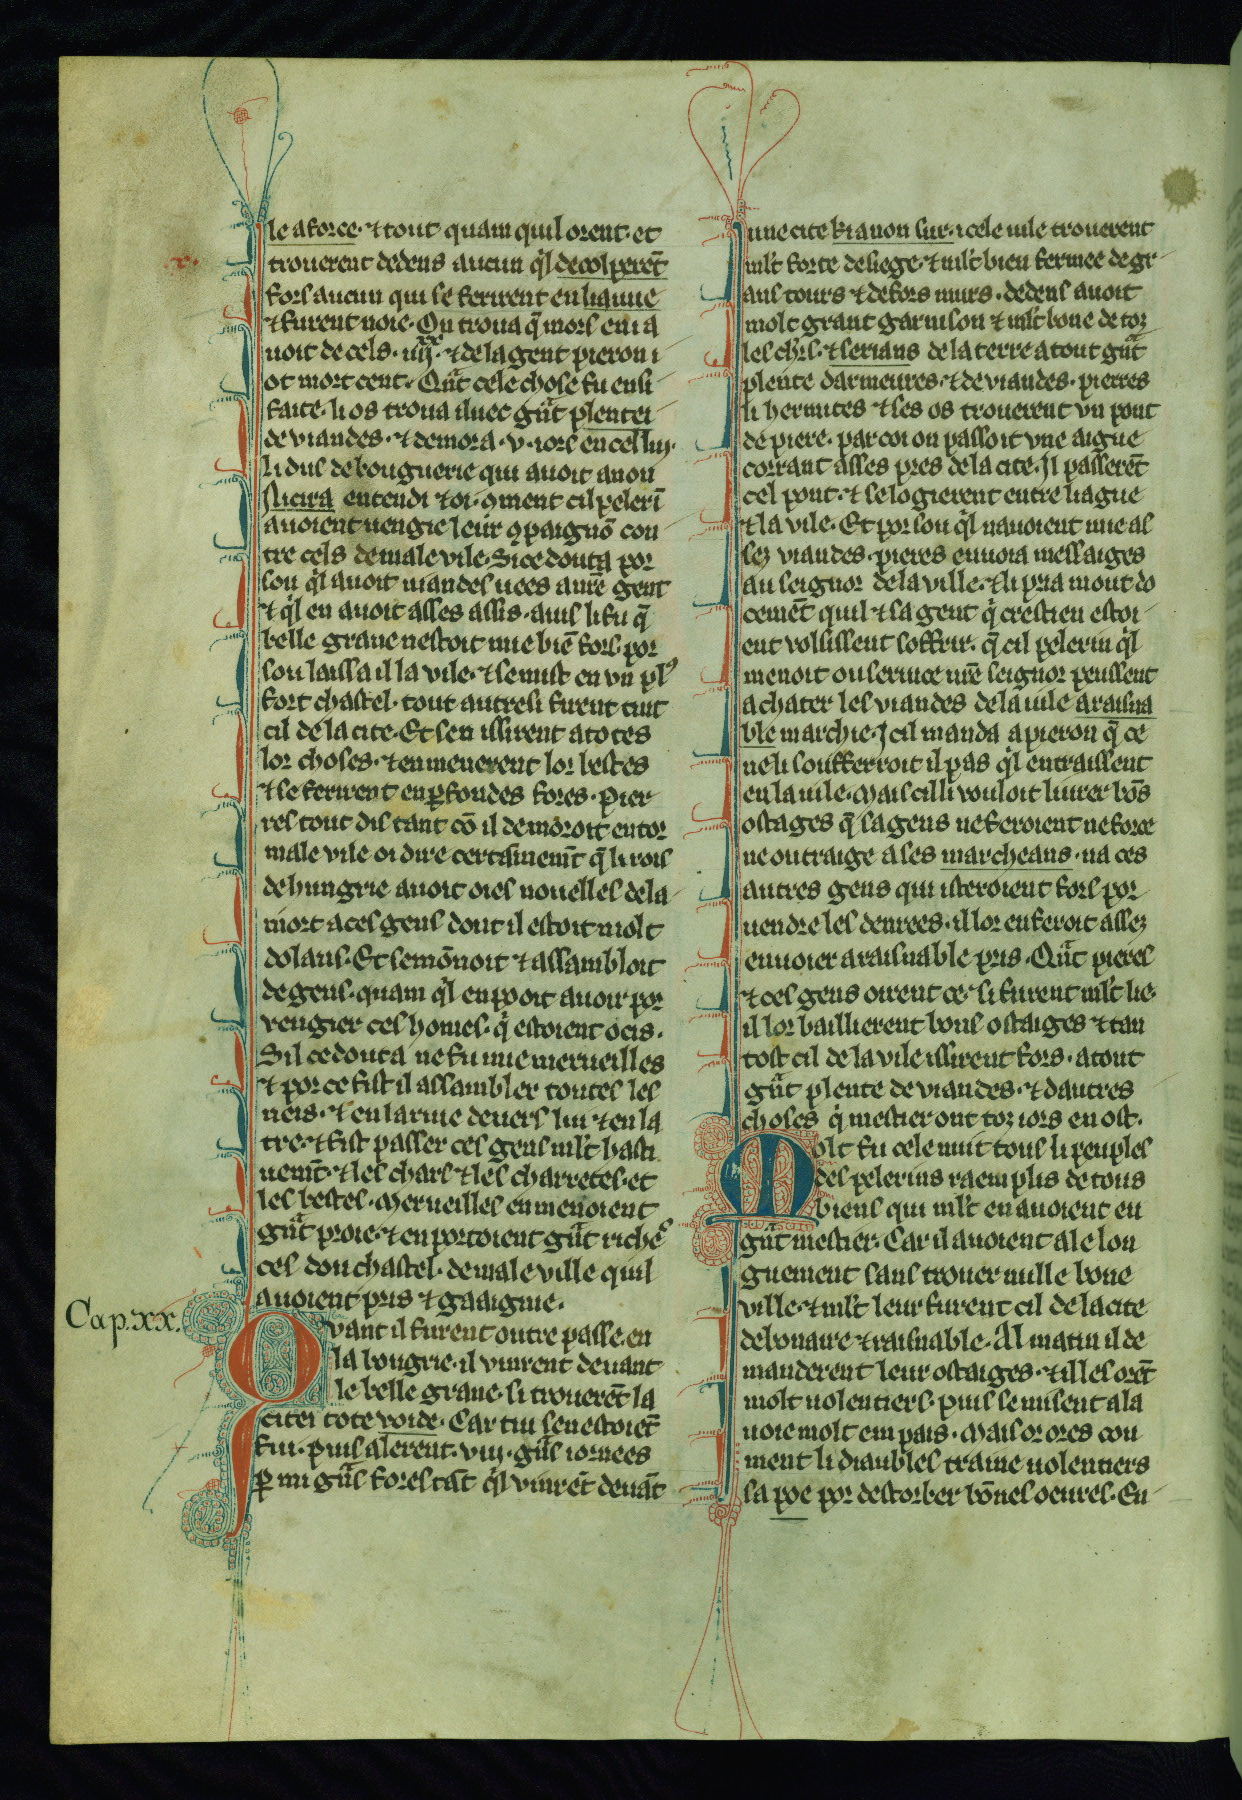 le a force. ⁊ tout quam quil orent. et
trouerent dedens aucun q̃l decolperẽt
fors aucun qui se ferirent en liauue
⁊ furent noie. On troua q̃ mors en i a
uoit de cels. iiij. ⁊ de la gent pieron i
ot mort cent. Qũt cele chose fu ensi
faite. li os troua iluec gñt plentei
de viandes. ⁊ demora .v. iors en cel liu.
li dus de bouguerie qui auoit a nou
Nicita entendi ⁊ oi. ꝯment cil pelerĩ
auoient uengie leur ꝯpaignõ con
tre cels de male vile. Si ce douta por
sou q̃l auoit mandes uees autre gent
⁊ q̃l en auoit asses assis. auis li fu q̃
belle graue nestoit mie biẽ fors. por
sou laissa il la vile. ⁊ se mist en vn plꝰ
fort chastel. tout autresi furent tuit
cil de la cite. Et sen issirent a totes
lor choses. ⁊ en menerent lor bestes
⁊ se ferirent en ꝑfondes fores. Pier
res tout dis tant cõ il demoroit en tor
male vile oi dire certainemt̃ q̃ li rois
de hungrie auoit oies nouelles de la
mort a ces gens dont il estoit molt
dolans. Et semõnoit ⁊ assambloit
de gens. quam q̃l en pooit auoir por
vengier ces homes. q̃ estoient ocis.
Sil ce douta ne fu mie merueilles
⁊ por ce fist il assambler toutes les
neis. ⁊ en larme deuers lui ⁊ en la
tre. ⁊ fist passer ces gens ml't hasti
uemt̃. ⁊ les chars ⁊ les charretes. et
les bestes. Merueilles en menoient
gñt proie. ⁊ en portoient gñt riche
ces dou chastel. de male ville quil
auoient pris ⁊ gaaignie.
Cap. xx.
Qvant il furent outre passe. en
la bougrie. il vinrent deuant
le belle graue. si trouerẽt la
citei tote voide. Car tui sen estoiẽt
fui. puis alerent .viij. gñs iornees
ꝑ mi gñs fores tãt q̃l vinrẽt deuãt
une cite ki a non sur. icele uile trouerent
ml't forte de siege. ⁊ ml't bien fermee de gr
ans tours ⁊ de fors murs. dedens auoit
molt grant garnison ⁊ ml't bone de toz
les ch'rs. ⁊ serians de la terre a tout gñt
plente darmeures. ⁊ de viandes. pierres
li hermites ⁊ ses os trouerent vn pont
de piere. par coi on passoit vne aigue
corrant asses pres de la cite. Il passerẽt
cel pont. ⁊ se logierent entre liague
⁊ la vile. Et por sou q̃l nauoient mie as
sez viandes. pieres enuoia messaiges
au seignor de la ville. ⁊ li pria mout do
cemẽt quil ⁊ sa gent q̃ crestien estoi
ent volsissent soffrir. q̃ cil pelerin q̃l
menoit ou seruice nr̃e seignor peussent
achater les viandes de la uile a raisna
ble marchie. Icil manda a pieron q̃ ce
ne li soufferroit il pas q̃l entraissent
en la uile. Mais cil li vouloit liurer bõs
ostages q̃ sa gens ne feroient ne force
ne outraige a ses marcheans. na ces
autres gens qui isteroient fors por
uendre les denrees. il lor en feroit assez
enuoier a raisnable pris. Qũt pieres
⁊ ces gens oirent ce. si furent ml't lie.
il lor baillierent bons ostaiges ⁊ tan
tost cil de la vile issirent fors. a tout
gñt plente de viandes. ⁊ dautres
choses q̃ mestier ont toz iors en ost.
Molt fu cele nuit tous li peuples
des pelerins raemplis de tous
biens qui ml't en auoient eu
gñt mestier. Car il auoient ale lon
guement sans trouer nulle bone
ville. ⁊ ml't leur furent cil de la cite
debonaire ⁊ raisnable. Al matin il de
manderent leur ostaiges. ⁊ il les orẽt
molt uolentiers. puis se misent a la
uoie molt em pais. Mais or ores cou
ment li diaubles traine uolentiers
sa poe por destorber bõnes oeures. En